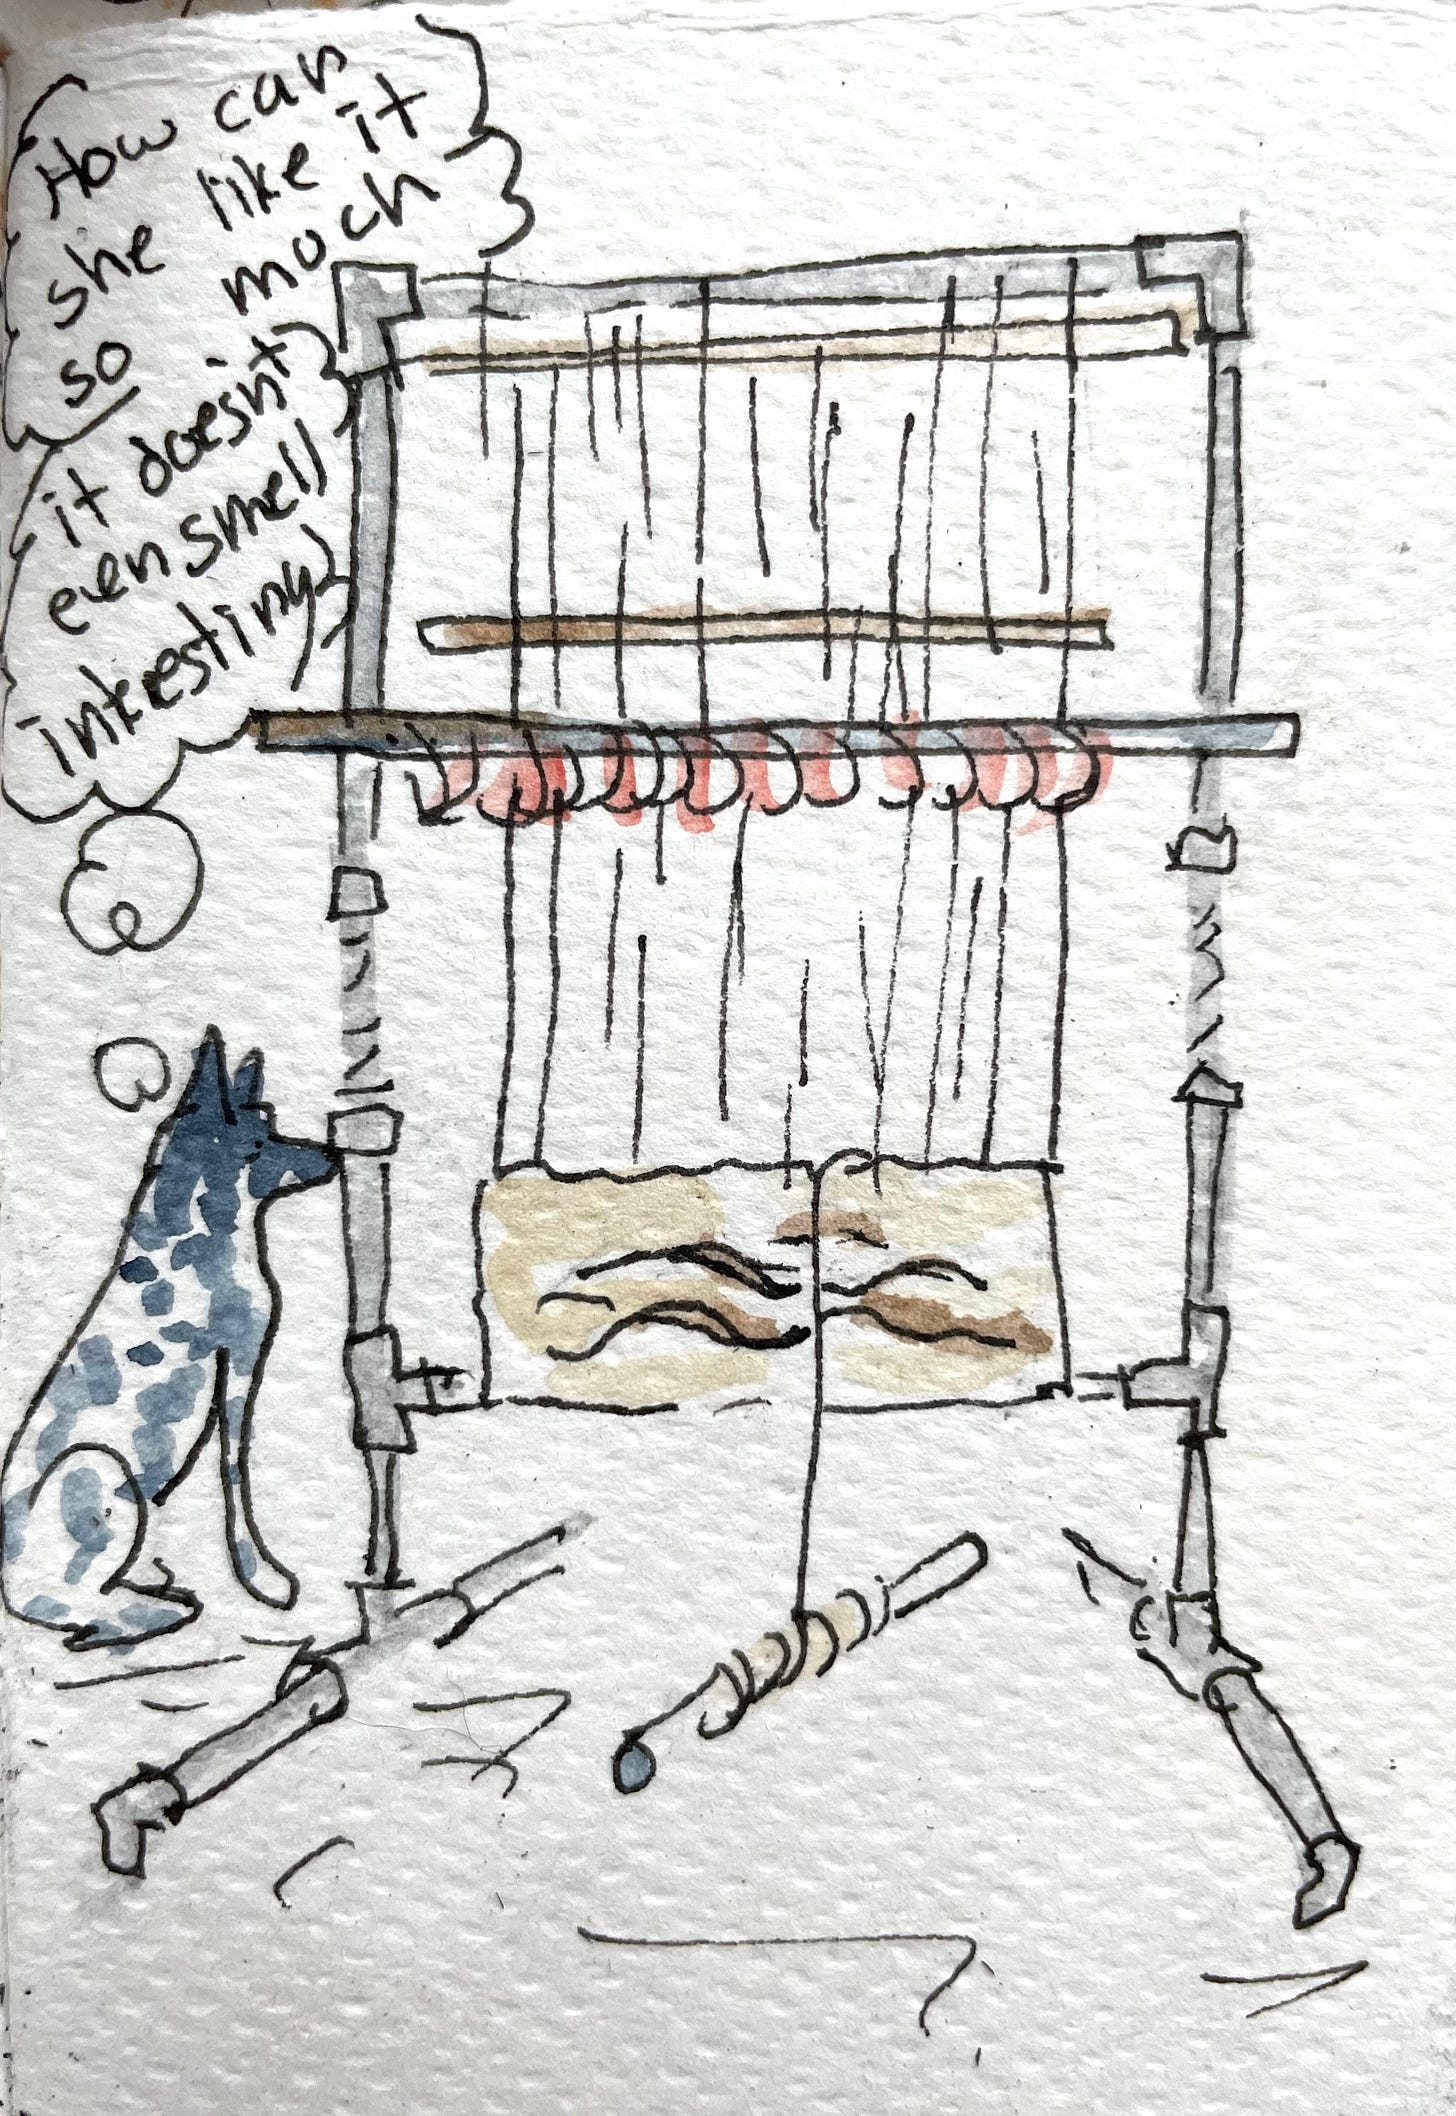 How can
she like it
so much
it doesn't
even smell
interesting